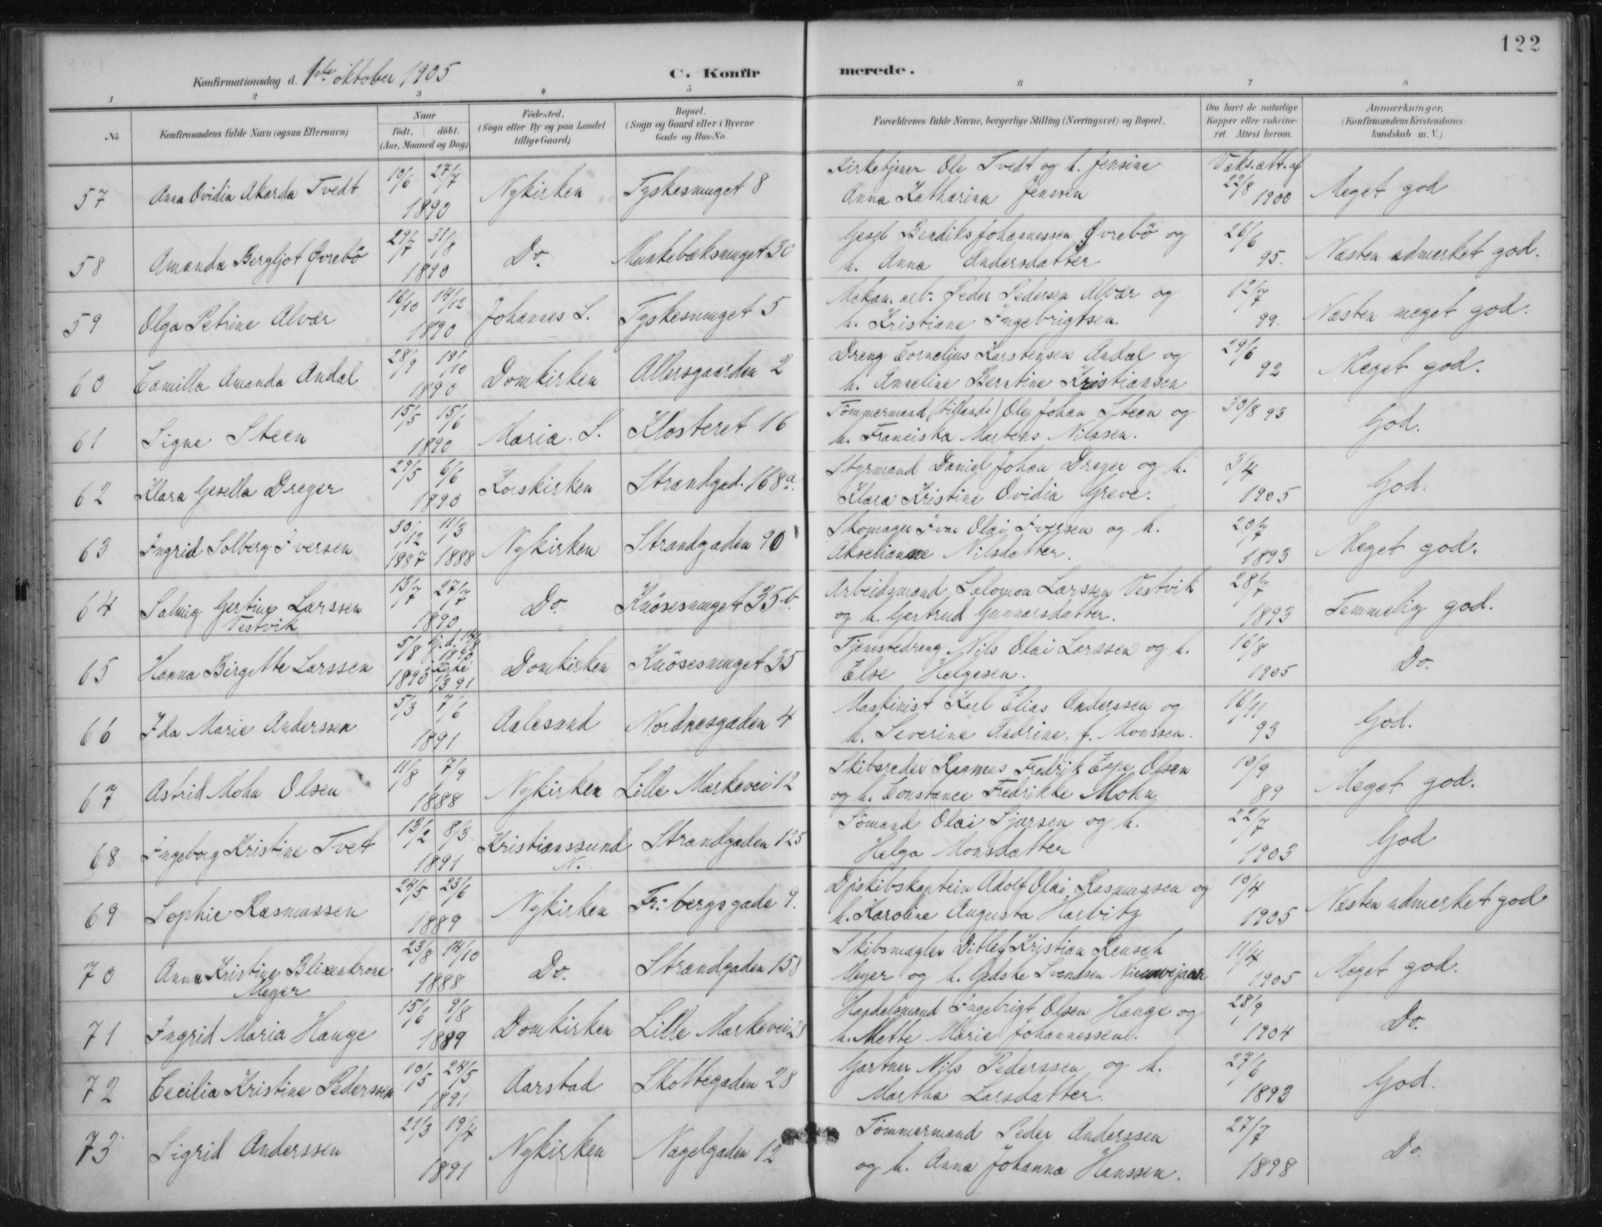 122
Konfirmationsdag d. 1ste oktober 1905
C. Konfirmerede.
1 2 3 4 5 6 7 8
No
Konfirmandens fulde Navn (ogsaa Efternavn)
Naar
født. døbt.
(Aar, Maaned og Dag)
Fødested.
(Sogn eller By og paa Landet
tillige Gaard)
Bopæl.
(Sogn og Gaard eller i Byerne
Gade og Hus-No.
Forældrenes fulde Navne, borgerlige Stilling (Næringsvei) og Bopæl.
Om havt de naturlige
Kopper eller vaksine-
ret. Attest herom.
Anmærkninger.
(Konfirmandens Kristendoms-
kundskab m. V.)
57 Anna Ovidia Akarda Tvedt 10/6 27/7 1890 Nykirken Tyskesmuget 8 Kirketjener Ole Tvedt og h. Jensine Anna Katharina Jenssen Vaks.att. af 22/8 1900 Meget god
58 Amanda Bergljot Øvrebö 29/7 31/8 1890 Do. Munkebæksmuget 30 Gesel Bendiks Johannessen Øvrebö og h. Anna Andersdatter 26/6 95. Næsten udmerket god.
59 Olga Petrine Alvær 16/10 14/12 1890 Johannes S. Tyskesmuget 5 Mekan. arb. Peder Pedersen Alvær og h. Kristiane Ingebrigtsen. 12/7 99. Næsten meget god.
60 Camilla Amanda Andal 28/9 19/10 1890 Domkirken Allersgaarden 2 Dreng Cornelius Karstensen Andal og h. Anneline Berntine Kristiansen 29/6 92 Meget god.
61 Signe Steen 15/5 15/6 1890 Maria. S. Klosteret 16 Tömmermand Ole Johan Steen og h. Franciska Martens Nilssen. 93 God.
62 Klara Gesella Dreyer 29/5 6/6 1890 Korskirken Strandgad. 168a. Styrmand Daniel Johan Dreyer og h. Klara Kristine Ovidia Greve. 3/4 1905 God.
63 Ingrid Solberg Iversen 30/12 1887 11/3 1888 Nykirken Strandgaden 90 Skomager Ivar Olai Iversen og h. Akselianne Nilsdatter. 20/7 1893 Meget god.
64 Salmig Gertine Larssen Vestvik 13/7 27/7 1890 Do. Knösesmuget 35b. Arbeidsmand Salomon Larssen Vestvik og h. Gertrud Gunnarsdatter. 28/7 1893 Temmelig god.
65 Hanna Birgitte Larssen 5/8 1890 hj.d. 14/8 1890 kirke 1/3 91 Domkirken Knösesmuget 35 Tjenestedreng Nils Olai Larssen og h. Else Helgesen. 16/8 1905 Do.
66 Ida Marie Anderssen 5/3 7/6 1891 Aalesund Nordnæsgaden 4 Maskinist Karl Elias Anderssen og h. Severine Andrine, f. Monssen. 16/11 93 God.
67 Astrid Mohn Olsen 11/8 7/9 1888 Nykirken Lille Markevei 12 Skibsreder Rasmus Fredrik Espe Olsen og h. Constance Fredrikke Mohn 10/9 89 Meget god.
68 Ingeborg Kristine Tvet 13/2 8/3 1891 Kristianssund N. Strandgaden 125 Sömand Olai Sjursen og h. Helga Monsdatter 22/7 1903 God
69 Sophie Rasmussen 24/5 23/6 1889 Nykirken Fr: bergsgade 9. Dpskibskaptein Adolf Olai Rasmussen og h. Karoline Augusta Harbitz 10/4 1905 Næsten udmerket god
70 Anna Kristine Blixenkrone Meyer 23/8 14/10 1888 Do. Strandgaden 158 Skibsmægler Ditlef Kristian Rensch Meyer og h. Gedske Svendsen Nieuwejaar 11/4 1905 Meget god.
71 Ingrid Maria Hauge 15/6 9/8 1889 Domkirken Lille Markevei 28 Handelsmand Ingebrigt Olsen Hauge og h. Mette Marie Johannessen. 28/9 1904 Do.
72 Cecilia Kristine Pederssen 10/5 24/5 1891 Aarstad Skottegaden 28 Gartner Nils Pederssen og h. Martha Larsdatter. 27/6 1893 God.
73 Sigrid Anderssen 21/3 19/4 1891 Nykirken Nagelgaden 12 Tömmermand Peder Anderssen og h. Anna Johanna Hanssen. 27/7 1898 Do.